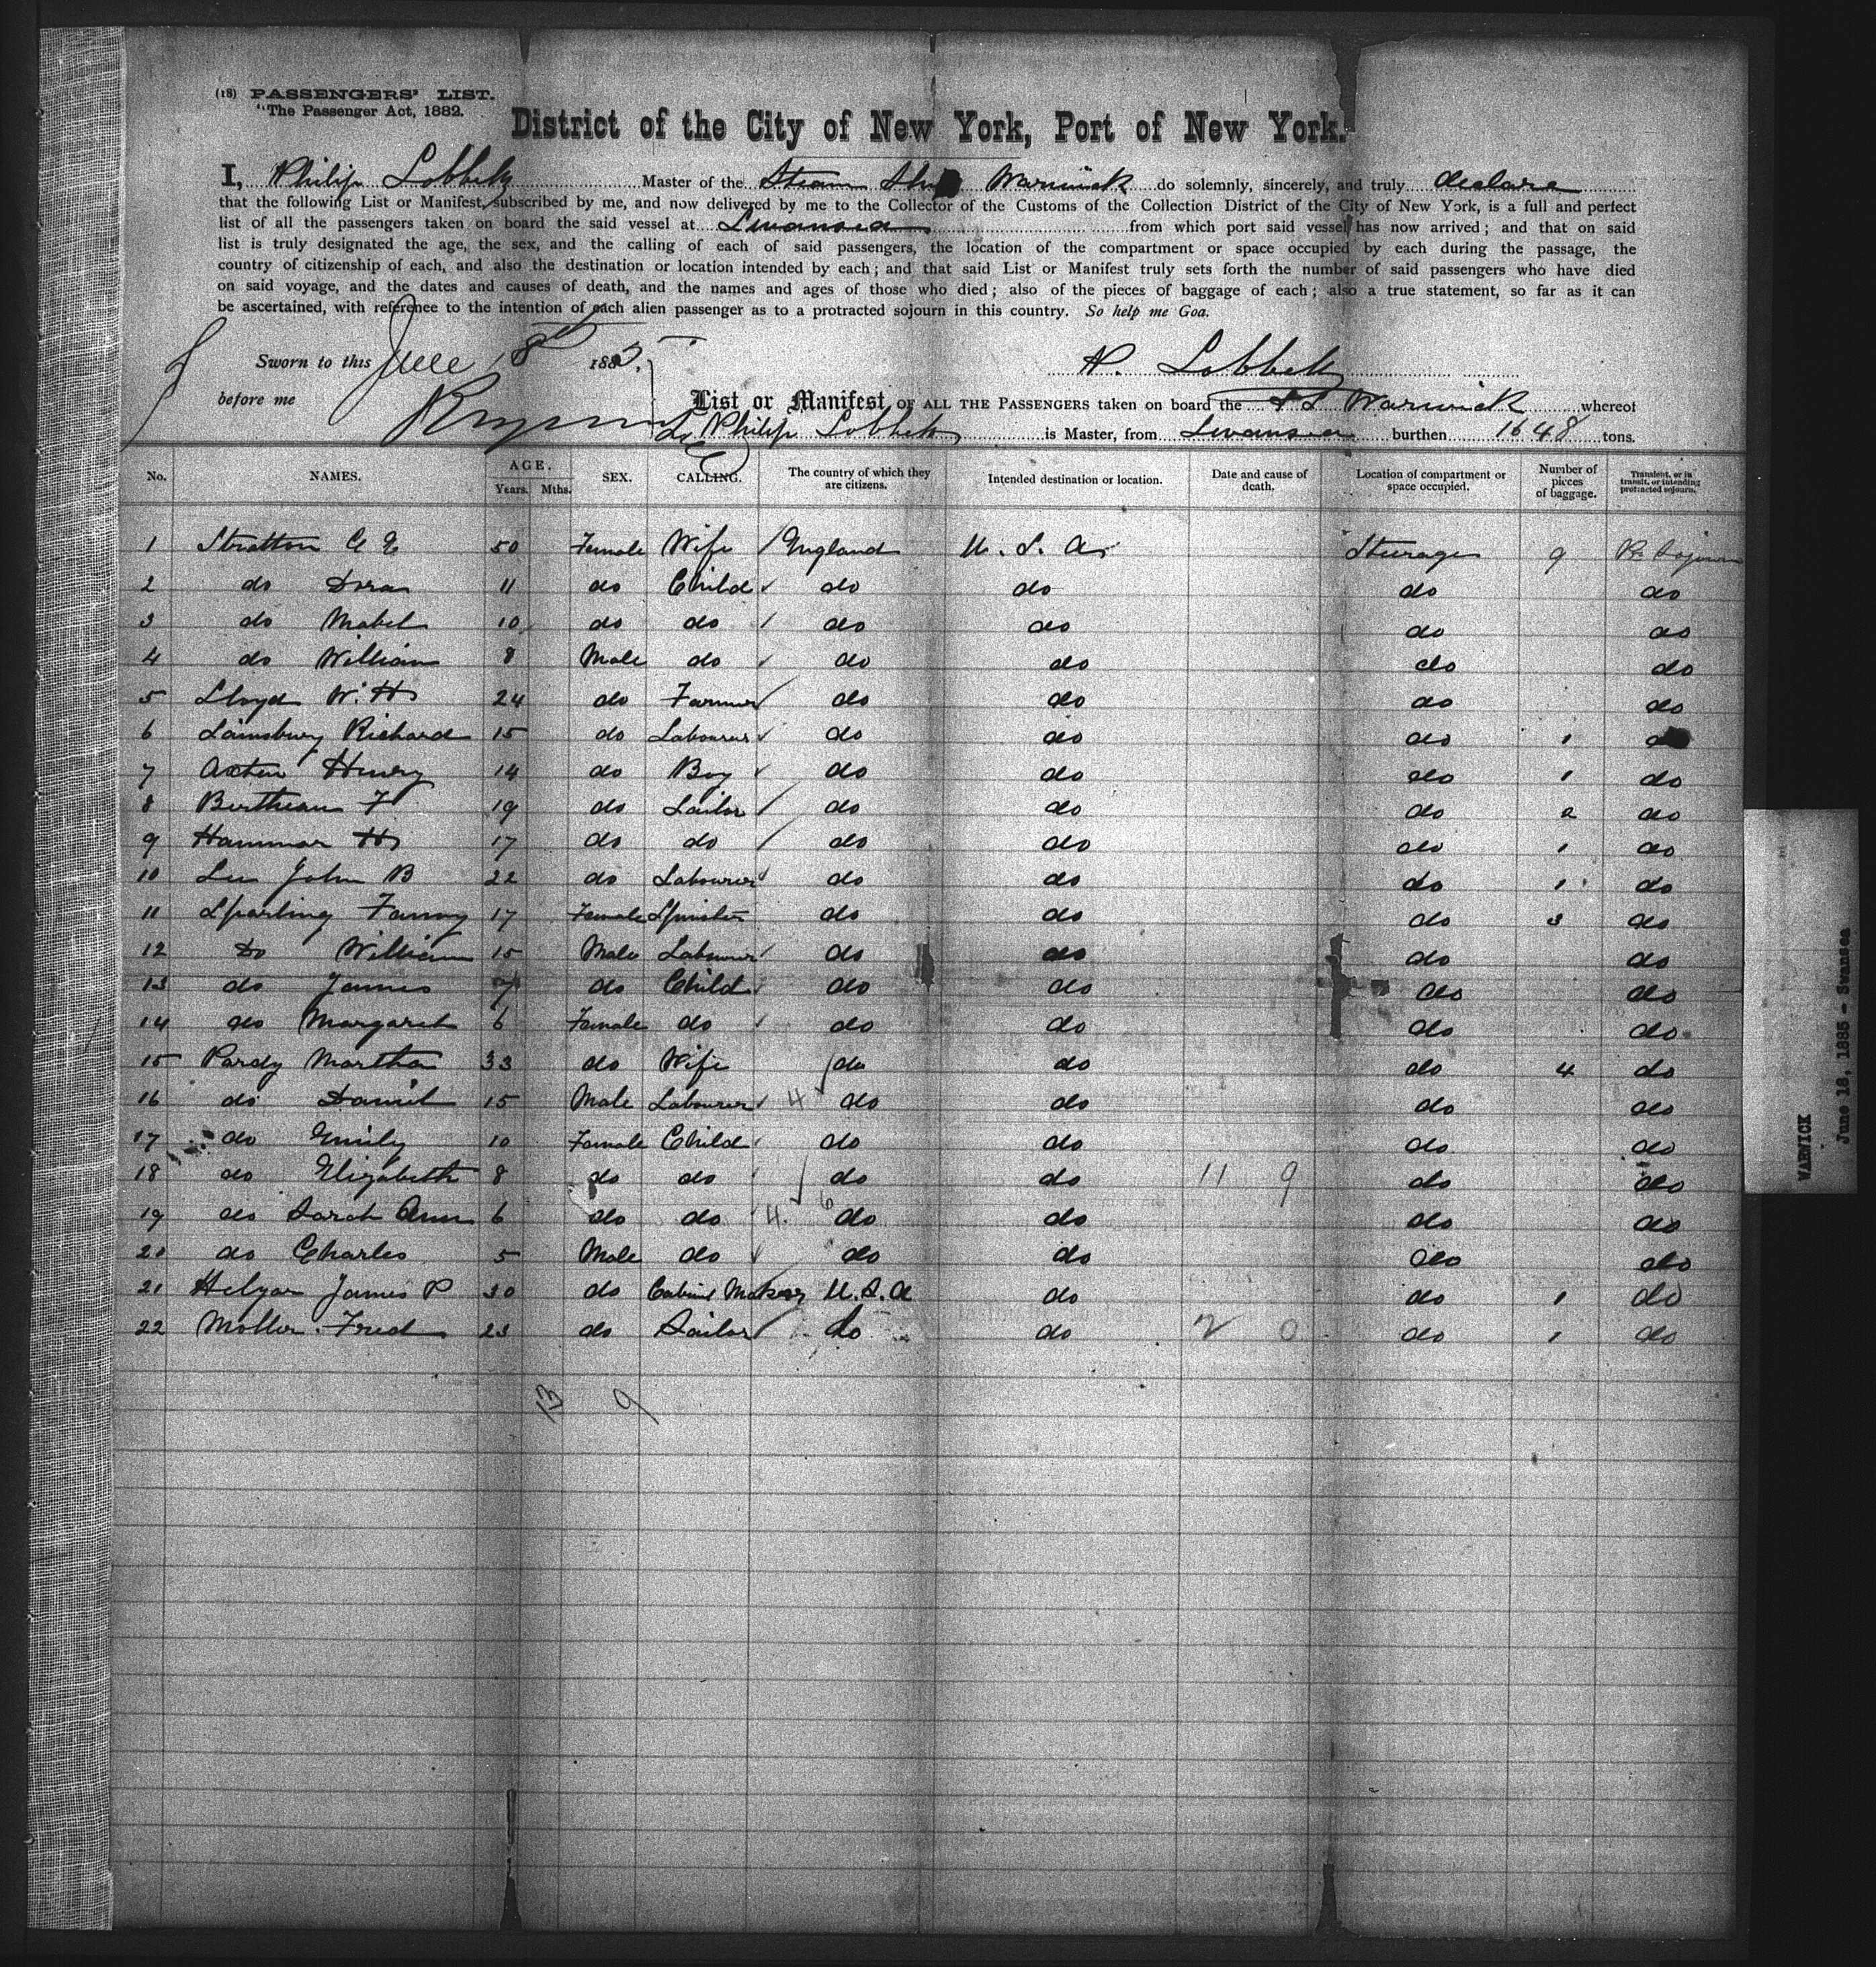 (18) PASSENGERS' LIST.
"The Passenger Act, 1882.
District of the City of New York, Port of New York.
I, Philip Lobbett Master of the Steam Ship Warwick do solemnly, sincerely, and truly declare
that the following List or Manifest, subscribed by me, and now delivered by me to the Collector of the Customs of the Collection District of the City of New York, is a full and perfect
list of all the passengers taken on board the said vessel at Swansea from which port said vessel has now arrived; and that on said
list is truly designated the age, the sex, and the calling of each of said passengers, the location of the compartment or space occupied by each during the passage, the
country of citizenship of each, and also the destination or location intended by each; and that said List or Manifest truly sets forth the number of said passengers who have died
on said voyage, and the dates and causes of death, and the names and ages of those who died; also of the pieces of baggage of each; also a true statement, so far as it can
be ascertained, with reference to the intention of each alien passenger as to a protracted sojourn in this country. So help me Goa.
Sworn to this June 18th 1885. P. Lobbett
before me
List or Manifest OF ALL THE PASSENGERS taken on board the S S Warwick whereof
Philip Lobbett is Master, from Swansea burthen 1648 tons.
No. NAMES. AGE. Years. Mths. SEX. CALLING. The country of which they are citizens. Intended destination or location. Date and cause of death. Location of compartment or space occupied. Number of pieces of baggage. Transient, or in transit, or intending protracted sojourn.
1 Stratton C E 50 Female Wife England U. S. A. Steerage 9 Pr. Sojourn
2 do Dora 11 do Child do do do do
3 do Mabel 10 do do do do do do
4 do William 8 Male do do do do do
5 Lloyd W. H 24 do Farmer do do do do
6 Sainsbury Richard 15 do Labourer do do do 1 do
7 Henry 14 do Boy do do do 1 do
8 F 19 do Sailor do do do 2 do
9 Hammar H 17 do do do do do 1 do
10 Lee John B 22 do Labourer do do do 1 do
11 Sparling Fanny 17 Female Spinster do do do 3 do
12 Do William 15 Male Labourer do do do do
13 do James do Child do do do do
14 do Margaret 6 Female do do do do do
15 Pardy Martha 33 do Wife do do do 4 do
16 do Daniel 15 Male Labourer 4 do do do do
17 do Emily 10 Female Child do do do do
18 do Elizabeth 8 do do do do 11 9 do do
19 do Sarah Ann 6 do do 4. 6 do do do do
20 do Charles 5 Male do do do do do
21 Helyar James P 30 do Cabinet Maker U. S. A do do 1 do
22 Moller Fred 23 do Sailor do do 2 0 do 1 do
13 9
WARWICK
June 18, 1885 - Swansea